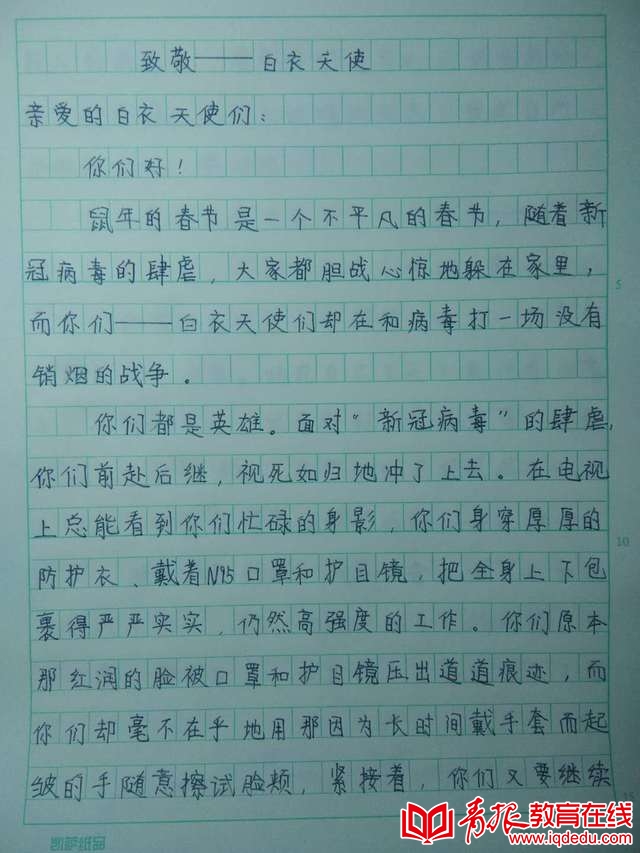 致敬——白衣天使
亲爱的白衣天使们：
你们好！
鼠年的春节是一个不平凡的春节，随着新
冠病毒的肆虐，大家都胆战心惊地躲在家里，
而你们——白衣天使们却在和病毒打一场没有
销烟的战争。
你们都是英雄。面对“新冠病毒”的肆虐，
你们前赴后继，视死如归地冲了上去。在电视
上总能看到你们忙碌的身影，你们身穿厚厚的
防护衣、戴着N95口罩和护目镜，把全身上下包
裹得严严实实，仍然高强度的工作。你们原本
那红润的脸被口罩和护目镜压出道道痕迹，而
你们却毫不在乎地用那因为长时间戴手套而起
皱的手随意擦试脸颊，紧接着，你们又要继续
5
10
15
凯萨纸品
青报教育在线
www.iqdedu.com